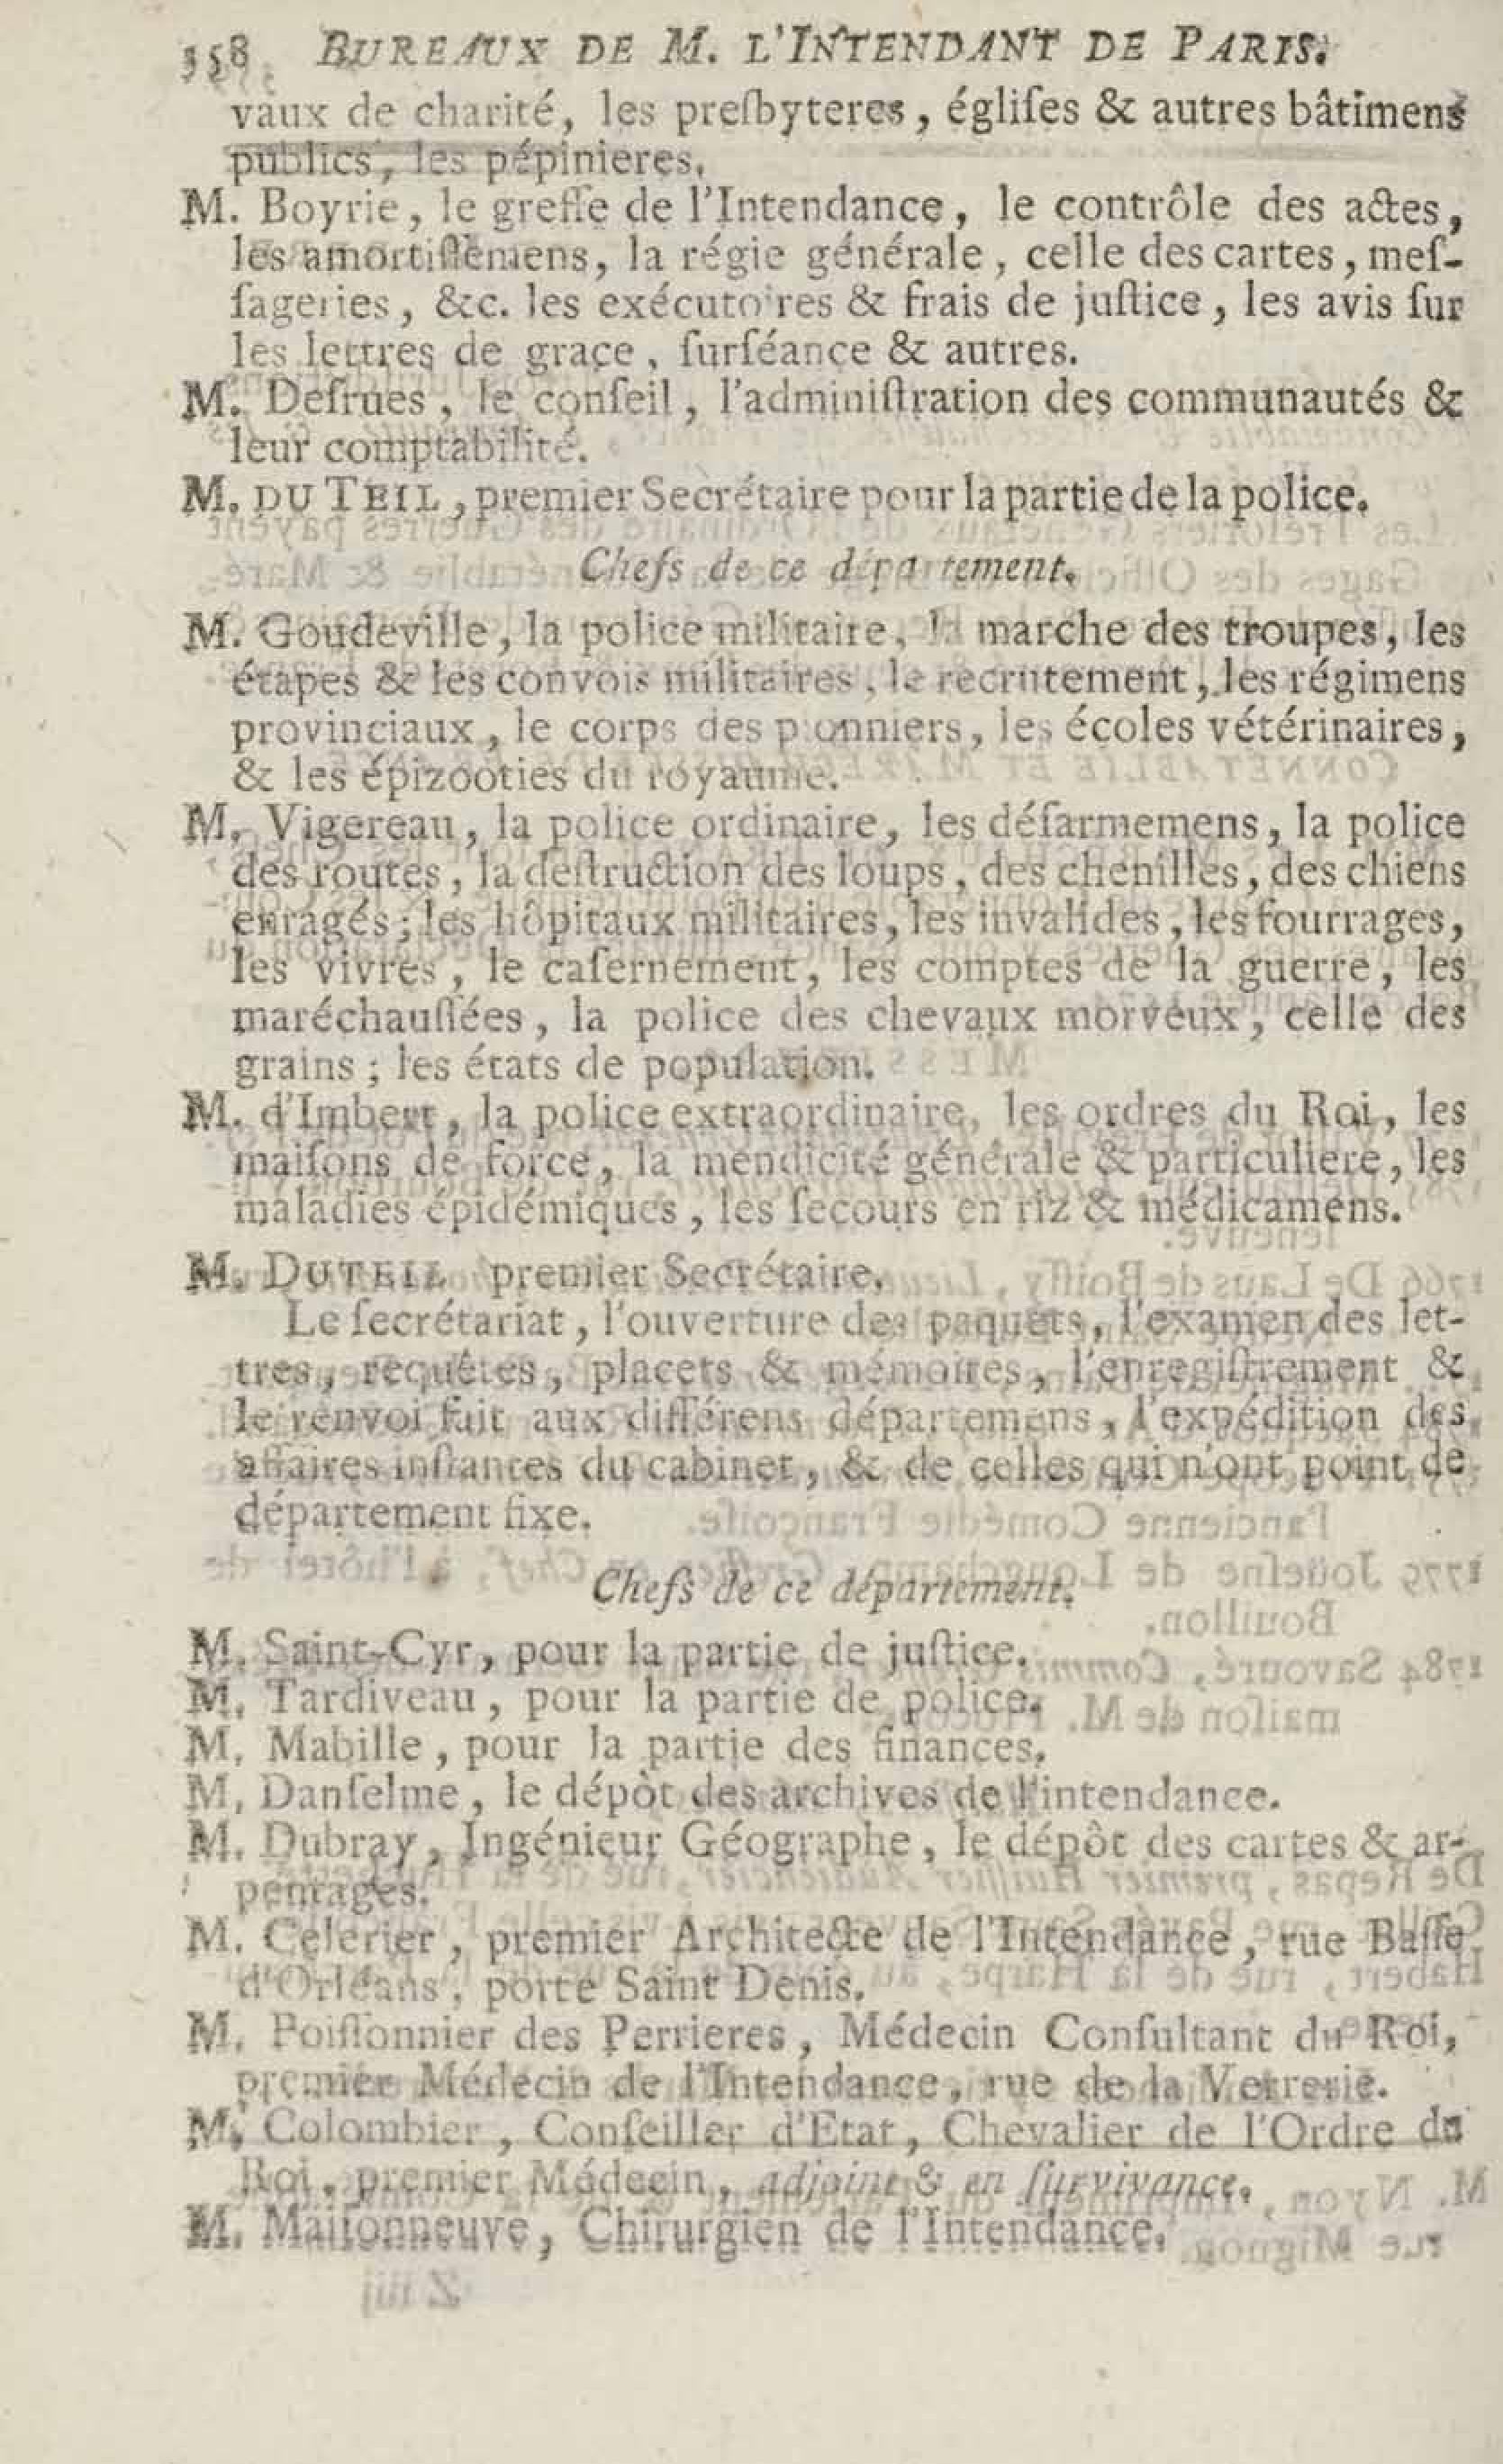 358 BUREAUX DE M. L'INTENDANT DE PARIS.
vaux de charité, les preſbyteres, égliſes & autres bâtimens
publics, les pépinieres.
M. Boyrie, le greffe de l'Intendance, le contrôle des actes,
les amortiſſemens, la régie générale, celle des cartes, meſ-
ſageries, &c. les exécutoires & frais de juſtice, les avis ſur
les lettres de grace, ſurſéance & autres.
M. Deſrues, le conſeil, l'adminiſtration des communautés &
leur comptabilité.
M. DU TEIL, premier Secrétaire pour la partie de la police.
Chefs de ce département.
M. Goudeville, la police militaire, la marche des troupes, les
étapes & les convois militaires, le recrutement, les régimens
provinciaux, le corps des pionniers, les écoles vétérinaires,
& les épizooties du royaume.
M. Vigereau, la police ordinaire, les déſarmemens, la police
des routes, la deſtruction des loups, des chenilles, des chiens
enragés; les hôpitaux militaires, les invalides, les fourrages,
les vivres, le caſernement, les comptes de la guerre, les
maréchauſſées, la police des chevaux morveux, celle des
grains; les états de population.
M. d'Imbert, la police extraordinaire, les ordres du Roi, les
maiſons de force, la mendicité générale & particuliere, les
maladies épidémiques, les ſecours en riz & médicamens.
M. DUTEIL premier Secrétaire.
Le ſecrétariat, l'ouverture des paquets, l'examen des let-
tres, requêtes, placets & mémoires, l'enregiſtrement &
le renvoi fait aux différens départemens, l'expédition des
affaires inſtantes du cabinet, & de celles qui n'ont point de
département fixe.
Chefs de ce département.
M. Saint-Cyr, pour la partie de juſtice.
M. Tardiveau, pour la partie de police.
M. Mabille, pour la partie des finances.
M. Danſelme, le dépôt des archives de l'intendance.
M. Dubray, Ingénieur Géographe, le dépôt des cartes & ar-
pentages.
M. Celerier, premier Architecte de l'Intendance, rue Baſſe
d'Orléans, porte Saint Denis.
M. Poiſſonnier des Perrieres, Médecin Conſultant du Roi,
premier Médecin de l'Intendance, rue de la Verrerie.
M. Colombier, Conſeiller d'Etat, Chevalier de l'Ordre du
Roi, premier Médecin, adjoint & en ſurvivance.
M. Maiſonneuve, Chirurgien de l'Intendance.